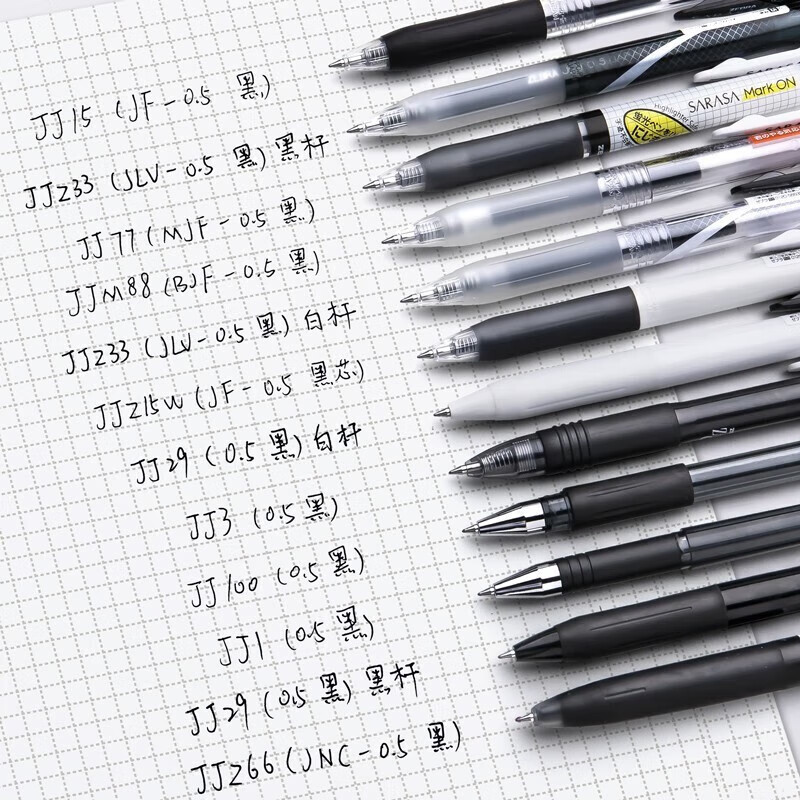 JJ15 (JF-0.5 黑)
JJZ33 (JLV-0.5 黑) 黑杆
JJ77 (MJF-0.5 黑)
JJM88 (BJF-0.5 黑)
JJZ33 (JLV-0.5 黑) 白杆
JJZ15W (JF-0.5 黑芯)
JJ29 (0.5 黑) 白杆
JJ3 (0.5 黑)
JJ100 (0.5 黑)
JJ1 (0.5 黑)
JJ29 (0.5 黑) 黑杆
JJZ66 (JNC-0.5 黑)
ZEBRA
SARASA Mark ON
Highlighter
蛍光ペンを
にじ